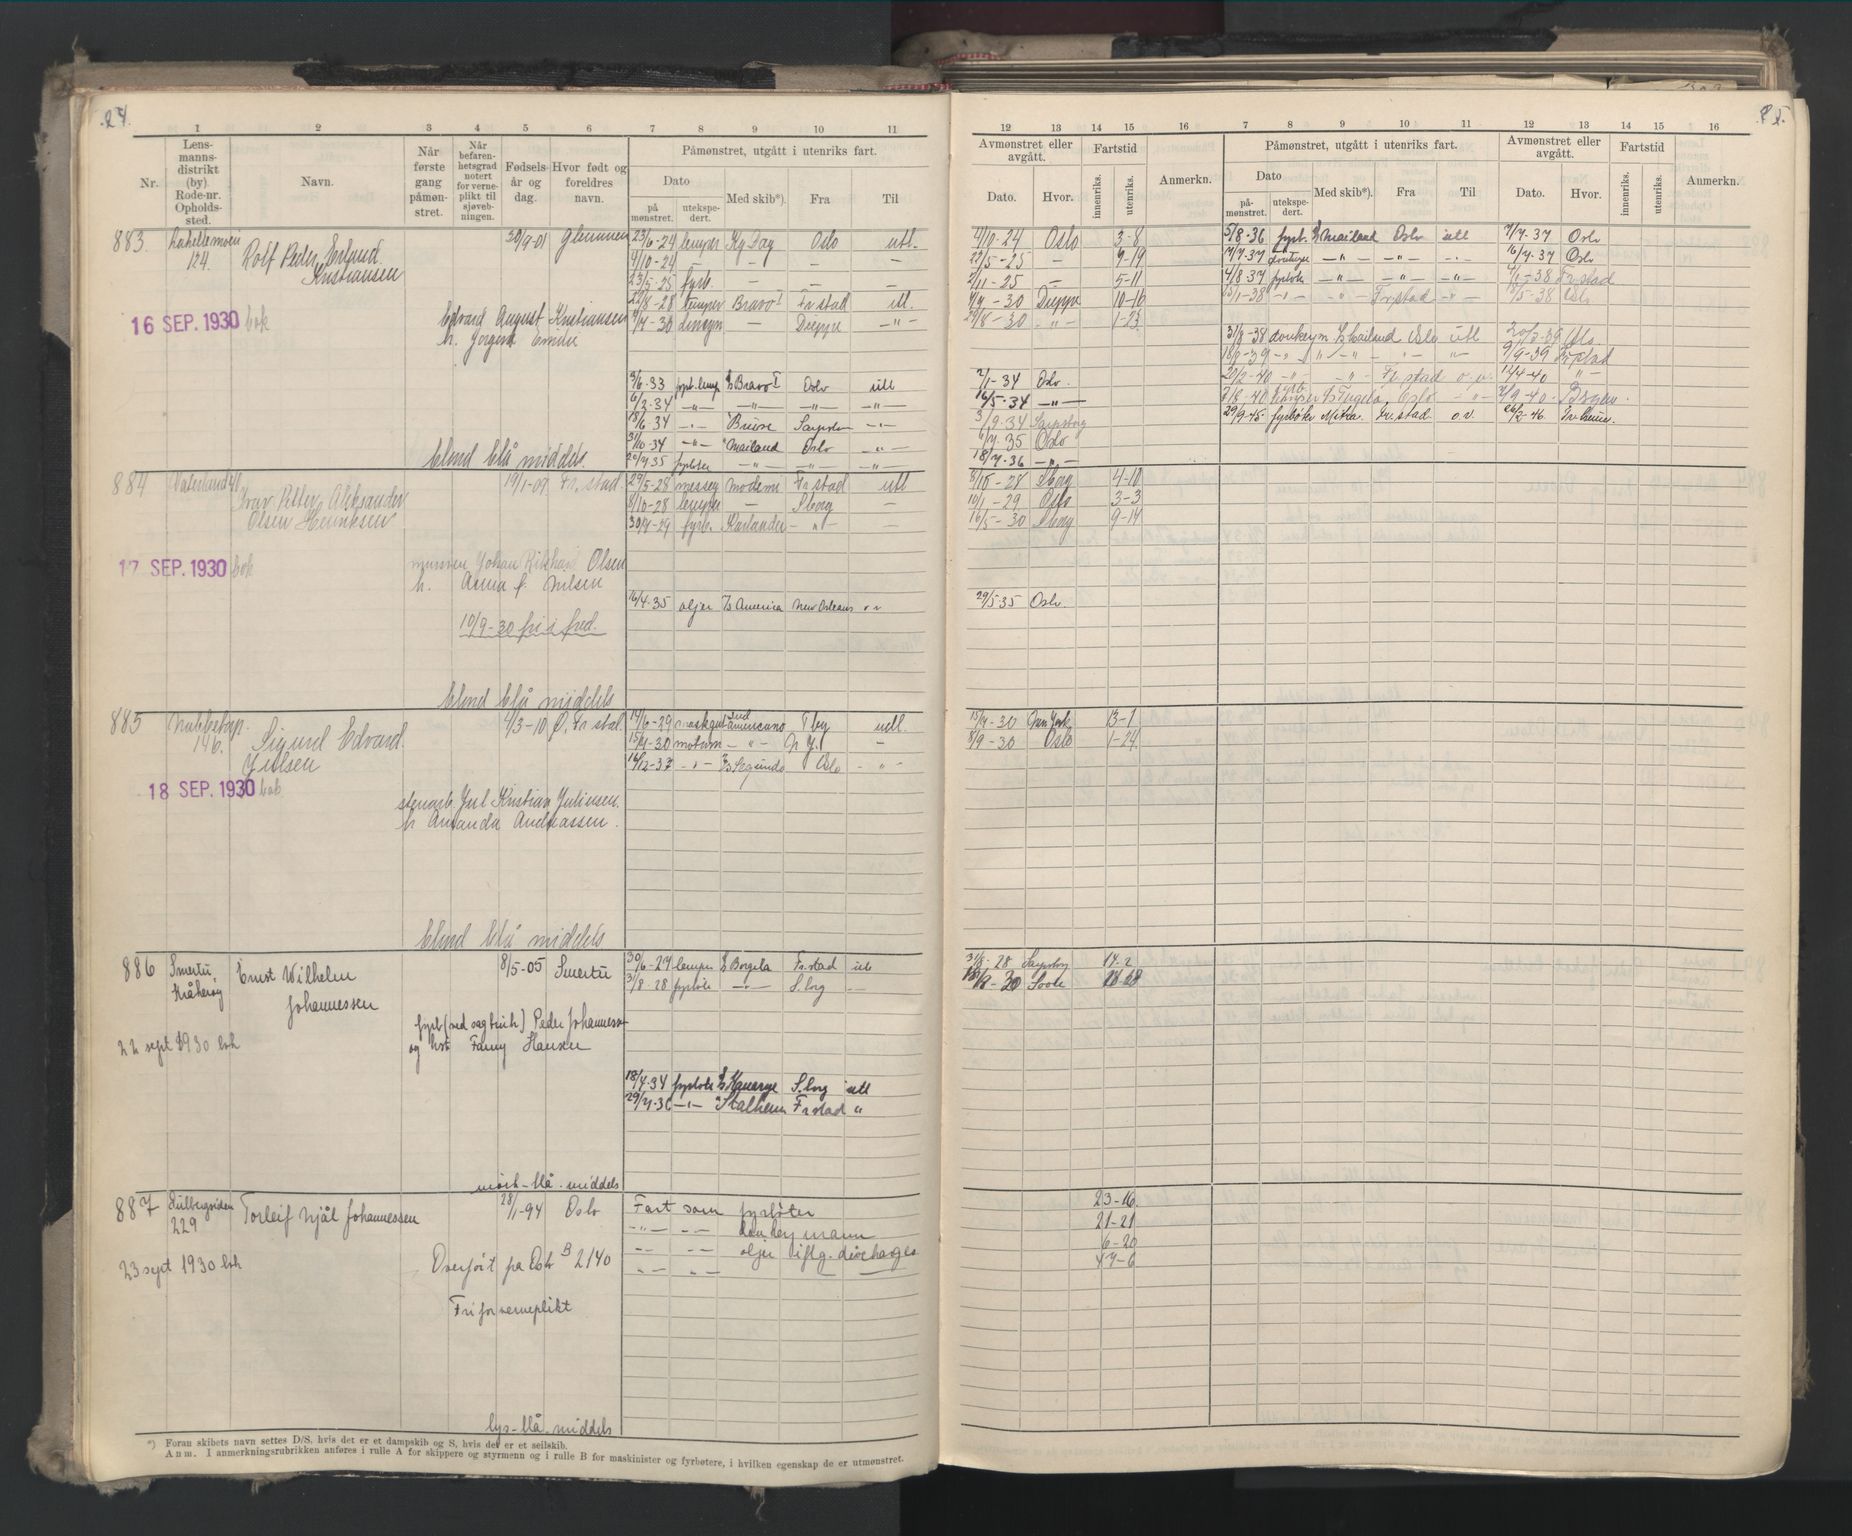 1 2 3 4 5 6 7 8 9 10 11
Nr.
Lens-
manns-
distrikt
(by)
Rode-nr.
Opholds-
sted.
Navn.
Når
første
gang
påmøn-
stret.
Når
befaren-
hetsgrad
notert
for verne-
pliktt til
sjøveb-
ningen.
Fødsels-
år og
dag.
Hvor født og
foreldres
navn.
Påmønstret, utgått i utenriks fart.
Dato
på
mønstret.
utekspe-
dert.
Med skib*).
Fra
Til
12 13 14 15 16 7 8 9 10 11 12 13 14 15 16
Avmønstret eller
avgått.
Dato. Hvor.
Fartstid
innenriks. utenriks.
Anmerkn.
Påmønstret, utgått i utenriks fart.
Dato
på-
mønstret.
utekspe-
dert.
Med skib*).
Fra
Til
Avmønstret eller
avgått.
Dato. Hvor.
Fartstid
innenriks. utenriks.
Anmerkn.
883 124. Rolf Peder Erlund Kristiansen
30/9-01 Glemmen
16 SEP. 1930 bok
Edvard August Kristiansen
h. Emilie
23/6-24 lemper Kg Dag Oslo utl.
4/10-24 — — —
23/5-25 fyrb. — —
22/8-28 lemper Bravo I Fr stad utl.
4/7-30 donkym — Dieppe — " —
3/6-33 fyrb. lemp Bravo I Oslo utl
6/2-34 — " — — " — — " — — " —
18/6 34 — " — Bruse Sarpsbor — " —
31/10-34 — " — Mailand Oslo "
20/7 35 fyrbøter — " — — " — — " —
blond blå middels.
4/10-24 Oslo 3-8
22/5-25 — 9-19
2/11-25 — 5-11
4/7-30 Dieppe 10-16
29/8-30 — " — 1-23
2/1-34 Oslo.
16/5-34 — " —
3/9-34 Sarpsborg
4/7 35 Oslo
18/7-36 — " —
5/8-36 fyrb. Mailand Oslo utl 7/7-37 Oslo
7/7-37 — " — — " — 16/7-37 Oslo
4/8-37 fyrbøt — " — — " — — " — 4/1-38 Fr stad
— " — Fr.stad — " — 18/5-38 Oslo
31/8-38 donkeym. Mailand Oslo utl 20/2-39 Oslo
9/9-39 Fr stad
20/2-40 — " — — " — Fr stad o.v. 12/4-40 — " —
Oslo
29/9-45 fyrbøter Fr. stad o.v.
884 Vaterland 41 Ivar Petter Aleksander
Olsen Henriksen
19/1-09 Fr. stad
17 SEP. 1930 bok
Johan Rikhard Olsen
h. Anna f. Nilsen
10/9-30 fri i fred.
29/5-28 messeg Modemi Fr stad utl
8/10-28 lemper — Sborg —
30/7-29 fyrb. Kaslander — " — —
16/4-35 oljer America New Orleans o v
blond blå middels
8/10-28 Sborg 4-10
10/1-29 Oslo 3-3
16/5-30 Sborg 9-14
29/5 35 Oslo.
885 Nabbetorp. 146. Sigurd Edvard.
Julsen
4/3-10 Ø. Fr stad.
18 SEP. 1930 bok
stenarb. Jul Kristian Juliusen.
h Amanda Andreassen.
14/6-29 americano T by utl.
15/4-30 motorm — " — N Y. —
16/12-37 — " — Segundo Oslo — " —
blond blå middels
15/4-30 New York 13-1
8/9-30 Oslo 1-24
886 Smertu, Kråkerøy Ernst Wilhelm
Johannessen
8/5-05 Smertu
22 sept 1930 bok
fyrb (ved sagbruk) Peder Johannessen
og hst Fanny Hansen
30/6-27 lemper Borgila Fr.stad utl
31/8-28 fyrbøte — " — S.borg —
18/4-34 fyrbøte S.borg utl
29/7-36 — " — Stalheim Fr stad "
mørk-blå-middels
31/8-28 Sarpsborg 14-2
887 Lilbergsiden 229 Torleif Njål Johannessen
28/1-94 Oslo
23 sept 1930 bok
Overført på Oslo B 2140
Fri for verneplikt
Fart som fyrbøter
— " — — " — donkeymann
— " — — " — oljer iflg. discharges
— " — — " —
lys-blå-middels
23-16
21-21
6-20
47-6
*) Foran skibets navn settes D/S, hvis det er et dampskib og S, hvis det er et seilskib.
Anm. I anmerkningsrubrikken anføres i rulle A for skippere og styrmenn og i rulle B for maskinister og fyrbøtere, i hvilken egenskap de er utmønstret.